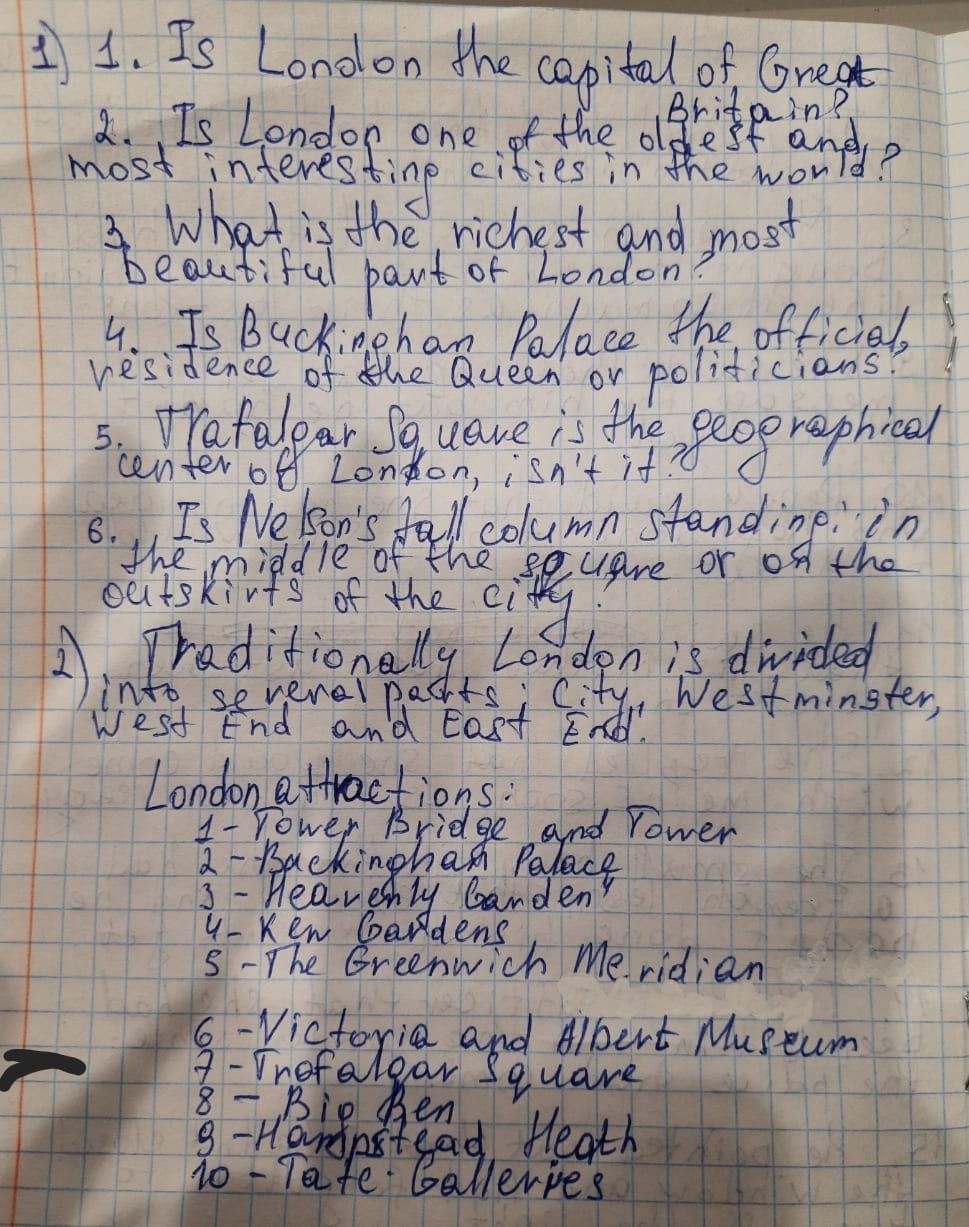 1) 1. Is London the capital of Great
Britain?
2. Is London one of the oldest and
most interesting cities in the world?
3. What is the richest and most
beautiful part of London?
4. Is Buckinghan Palace the official
residence of the Queen or politicians?
5. Trafalgar Square is the geographical
center of London, isn't it?
6. Is Nelson's tall column standing in
the middle of the square or on the
outskirts of the city?
2) Traditionally London is divided
into several parts: City, Westminster,
West End and East End.
London attractions:
1 - Tower Bridge and Tower
2 - Buckingham Palace
3 - Heavenly Garden"
4 - Kew Gardens
5 - The Greenwich Meridian
6 - Victoria and Albert Museum
7 - Trafalgar Square
8 - Big Ben
9 - Hampstead Heath
10 - Tate Galleries